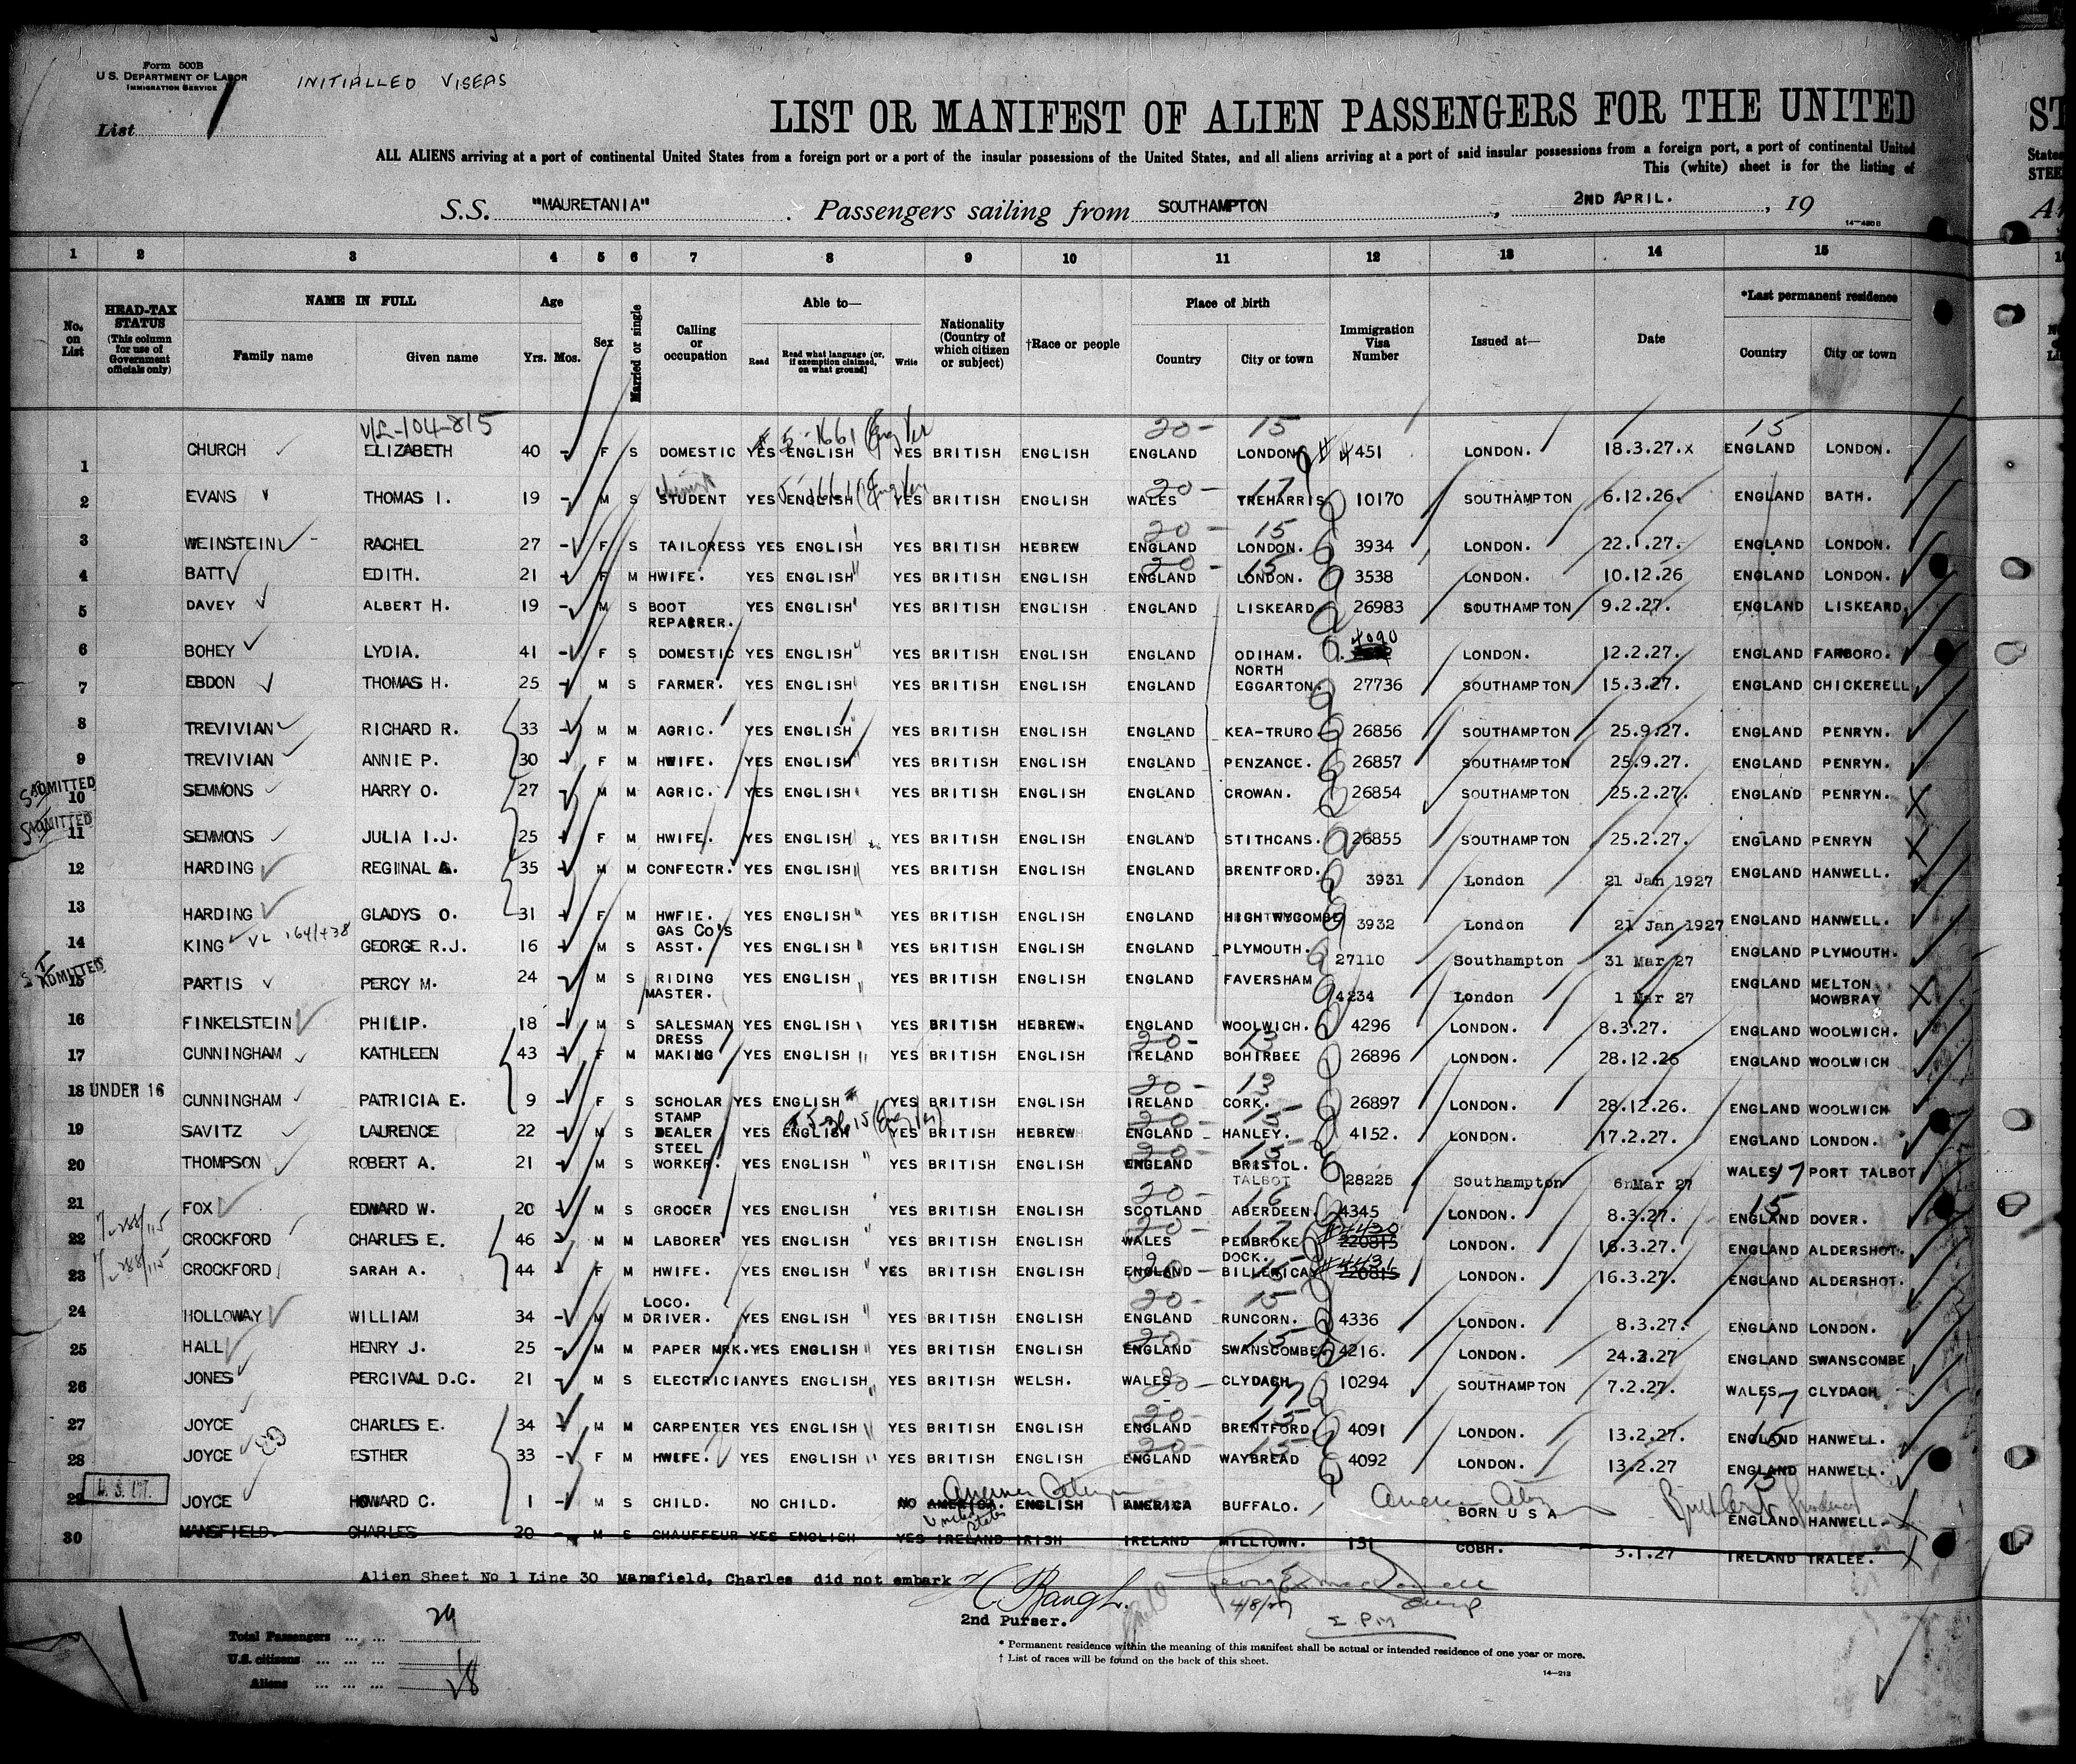 Form 500B
U.S. DEPARTMENT OF LABOR
IMMIGRATION SERVICE
INITIALLED VISEAS
List 1
LIST OR MANIFEST OF ALIEN PASSENGERS FOR THE UNITED
ALL ALIENS arriving at a port of continental United States from a foreign port or a port of the insular possessions of the United States, and all aliens arriving at a port of said insular possessions from a foreign port, a port of continental United
This (white) sheet is for the listing of
S.S. "MAURETANIA" . Passengers sailing from SOUTHAMPTON , 2ND APRIL. , 19
1 2 3 4 5 6 7 8 9 10 11 12 13 14 15
No. on List
HEAD-TAX STATUS (This column for use of Government officials only)
NAME IN FULL Family name Given name
Age Yrs. Mos.
Sex
Married or single
Calling or occupation
Able to— Read Read what language (or, if exemption claimed, on what ground) Write
Nationality (Country of which citizen or subject)
†Race or people
Place of birth Country City or town
Immigration Visa Number
Issued at—
Date
*Last permanent residence Country City or town
1 CHURCH ELIZABETH 40 - F S DOMESTIC YES ENGLISH YES BRITISH ENGLISH ENGLAND LONDON 451 LONDON. 18.3.27.x ENGLAND LONDON.
2 EVANS THOMAS I. 19 - M S STUDENT YES ENGLISH YES BRITISH ENGLISH WALES TREHARRIS 10170 SOUTHAMPTON 6.12.26. ENGLAND BATH.
3 WEINSTEIN RACHEL 27 - F S TAILORESS YES ENGLISH YES BRITISH HEBREW ENGLAND LONDON. 3934 LONDON. 22.1.27. ENGLAND LONDON.
4 BATT EDITH. 21 - F M HWIFE. YES ENGLISH YES BRITISH ENGLISH ENGLAND LONDON. 3538 LONDON. 10.12.26 ENGLAND LONDON.
5 DAVEY ALBERT H. 19 - M S BOOT REPAIRER. YES ENGLISH YES BRITISH ENGLISH ENGLAND LISKEARD 26983 SOUTHAMPTON 9.2.27. ENGLAND LISKEARD.
6 BOHEY LYDIA. 41 - F S DOMESTIC YES ENGLISH YES BRITISH ENGLISH ENGLAND ODIHAM. 4090 LONDON. 12.2.27. ENGLAND FARBORO.
7 EBDON THOMAS H. 25 - M S FARMER. YES ENGLISH YES BRITISH ENGLISH ENGLAND NORTH EGGARTON. 27736 SOUTHAMPTON 15.3.27. ENGLAND CHICKERELL
8 TREVIVIAN RICHARD R. 33 - M M AGRIC. YES ENGLISH YES BRITISH ENGLISH ENGLAND KEA-TRURO 26856 SOUTHAMPTON 25.9.27. ENGLAND PENRYN.
9 TREVIVIAN ANNIE P. 30 - F M HWIFE. YES ENGLISH YES BRITISH ENGLISH ENGLAND PENZANCE. 26857 SOUTHAMPTON 25.9.27. ENGLAND PENRYN.
ADMITTED 10 SEMMONS HARRY O. 27 - M M AGRIC. YES ENGLISH YES BRITISH ENGLISH ENGLAND CROWAN. 26854 SOUTHAMPTON 25.2.27. ENGLAND PENRYN.
ADMITTED 11 SEMMONS JULIA I.J. 25 - F M HWIFE. YES ENGLISH YES BRITISH ENGLISH ENGLAND STITHCANS. 26855 SOUTHAMPTON 25.2.27. ENGLAND PENRYN
12 HARDING REGINAL A. 35 - M M CONFECTR. YES ENGLISH YES BRITISH ENGLISH ENGLAND BRENTFORD. 3931 London 21 Jan 1927 ENGLAND HANWELL.
13 HARDING GLADYS O. 31 - F M HWFIE. YES ENGLISH YES BRITISH ENGLISH ENGLAND HIGH WYCOMBE 3932 London 21 Jan 1927 ENGLAND HANWELL.
14 KING GEORGE R.J. 16 - M S GAS Co's ASST. YES ENGLISH YES BRITISH ENGLISH ENGLAND PLYMOUTH. 27110 Southampton 31 Mar 27 ENGLAND PLYMOUTH.
ADMITTED 15 PARTIS PERCY M. 24 - M S RIDING MASTER. YES ENGLISH YES BRITISH ENGLISH ENGLAND FAVERSHAM 4234 London 1 Mar 27 ENGLAND MELTON MOWBRAY
16 FINKELSTEIN PHILIP. 18 - M S SALESMAN YES ENGLISH YES BRITISH HEBREW. ENGLAND WOOLWICH. 4296 LONDON. 8.3.27. ENGLAND WOOLWICH.
17 CUNNINGHAM KATHLEEN 43 - F M DRESS MAKING YES ENGLISH YES BRITISH ENGLISH IRELAND BOHIRBEE 26896 LONDON. 28.12.26 ENGLAND WOOLWICH
18 UNDER 16 CUNNINGHAM PATRICIA E. 9 - F S SCHOLAR YES ENGLISH YES BRITISH ENGLISH IRELAND CORK. 26897 LONDON. 28.12.26. ENGLAND WOOLWICH
19 SAVITZ LAURENCE 22 - M S STAMP DEALER YES ENGLISH YES BRITISH HEBREW ENGLAND HANLEY. 4152. LONDON. 17.2.27. ENGLAND LONDON.
20 THOMPSON ROBERT A. 21 - M S STEEL WORKER. YES ENGLISH YES BRITISH ENGLISH ENGLAND BRISTOL. TALBOT 28225 Southampton 6 Mar 27 WALES 17 PORT TALBOT
21 FOX EDWARD W. 20 - M S GROCER YES ENGLISH YES BRITISH ENGLISH SCOTLAND ABERDEEN. 4345 LONDON. 8.3.27. ENGLAND DOVER.
22 CROCKFORD CHARLES E. 46 - M M LABORER YES ENGLISH YES BRITISH ENGLISH WALES PEMBROKE DOCK. #4430 220815 LONDON. 16.3.27. ENGLAND ALDERSHOT.
23 CROCKFORD SARAH A. 44 - F M HWIFE. YES ENGLISH YES BRITISH ENGLISH ENGLAND BILLERICAY #4431 220815 LONDON. 16.3.27. ENGLAND ALDERSHOT.
24 HOLLOWAY WILLIAM 34 - M M LOCO. DRIVER. YES ENGLISH YES BRITISH ENGLISH ENGLAND RUNCORN. 4336 LONDON. 8.3.27. ENGLAND LONDON.
25 HALL HENRY J. 25 - M M PAPER MRK. YES ENGLISH YES BRITISH ENGLISH ENGLAND SWANSCOMBE 4216. LONDON. 24.2.27 ENGLAND SWANSCOMBE
26 JONES PERCIVAL D.C. 21 - M S ELECTRICIAN YES ENGLISH YES BRITISH WELSH. WALES CLYDACH 10294 SOUTHAMPTON 7.2.27. WALES CLYDACH
27 JOYCE CHARLES E. 34 - M M CARPENTER YES ENGLISH YES BRITISH ENGLISH ENGLAND BRENTFORD. 4091 LONDON. 13.2.27. ENGLAND HANWELL.
28 JOYCE ESTHER 33 - F M HWIFE. YES ENGLISH YES BRITISH ENGLISH ENGLAND WAYBREAD 4092 LONDON. 13.2.27 ENGLAND HANWELL.
29 JOYCE HOWARD C. 1 - M S CHILD. NO CHILD. NO AMERICA. United States ENGLISH AMERICA BUFFALO. BORN U S A ENGLAND HANWELL
30 MANSFIELD. CHARLES 20 - M S CHAUFFEUR YES ENGLISH YES IRELAND IRISH IRELAND MILLTOWN. 151 COBH. 3.1.27 IRELAND TRALEE.
Alien Sheet No 1 Line 30 Mansfield, Charles did not embark
2nd Purser.
4/8/27
Total Passengers ... ... 29
U.S. citizens ... ... ... 1
Aliens ... ... ... 28
* Permanent residence within the meaning of this manifest shall be actual or intended residence of one year or more.
† List of races will be found on the back of this sheet.
14—213